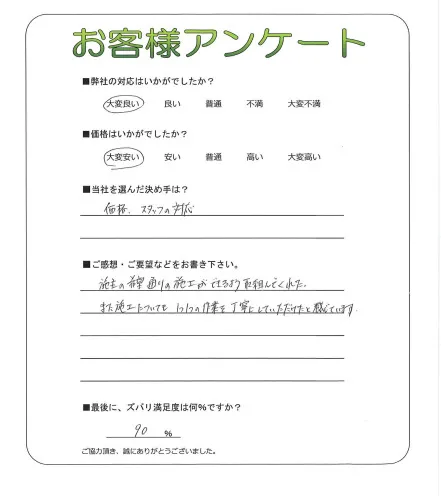 お客様アンケート
■弊社の対応はいかがでしたか？
大変良い 良い 普通 不満 大変不満
■価格はいかがでしたか？
大変安い 安い 普通 高い 大変高い
■当社を選んだ決め手は？
価格、スタッフの対応
■ご感想・ご要望などをお書き下さい。
施主の希望通りの施工ができるよう取組んでくれた。
また施工についても1つ1つの作業を丁寧にしていただけたと感じています。
■最後に、ズバリ満足度は何％ですか？
90 ％
ご協力頂き、誠にありがとうございました。